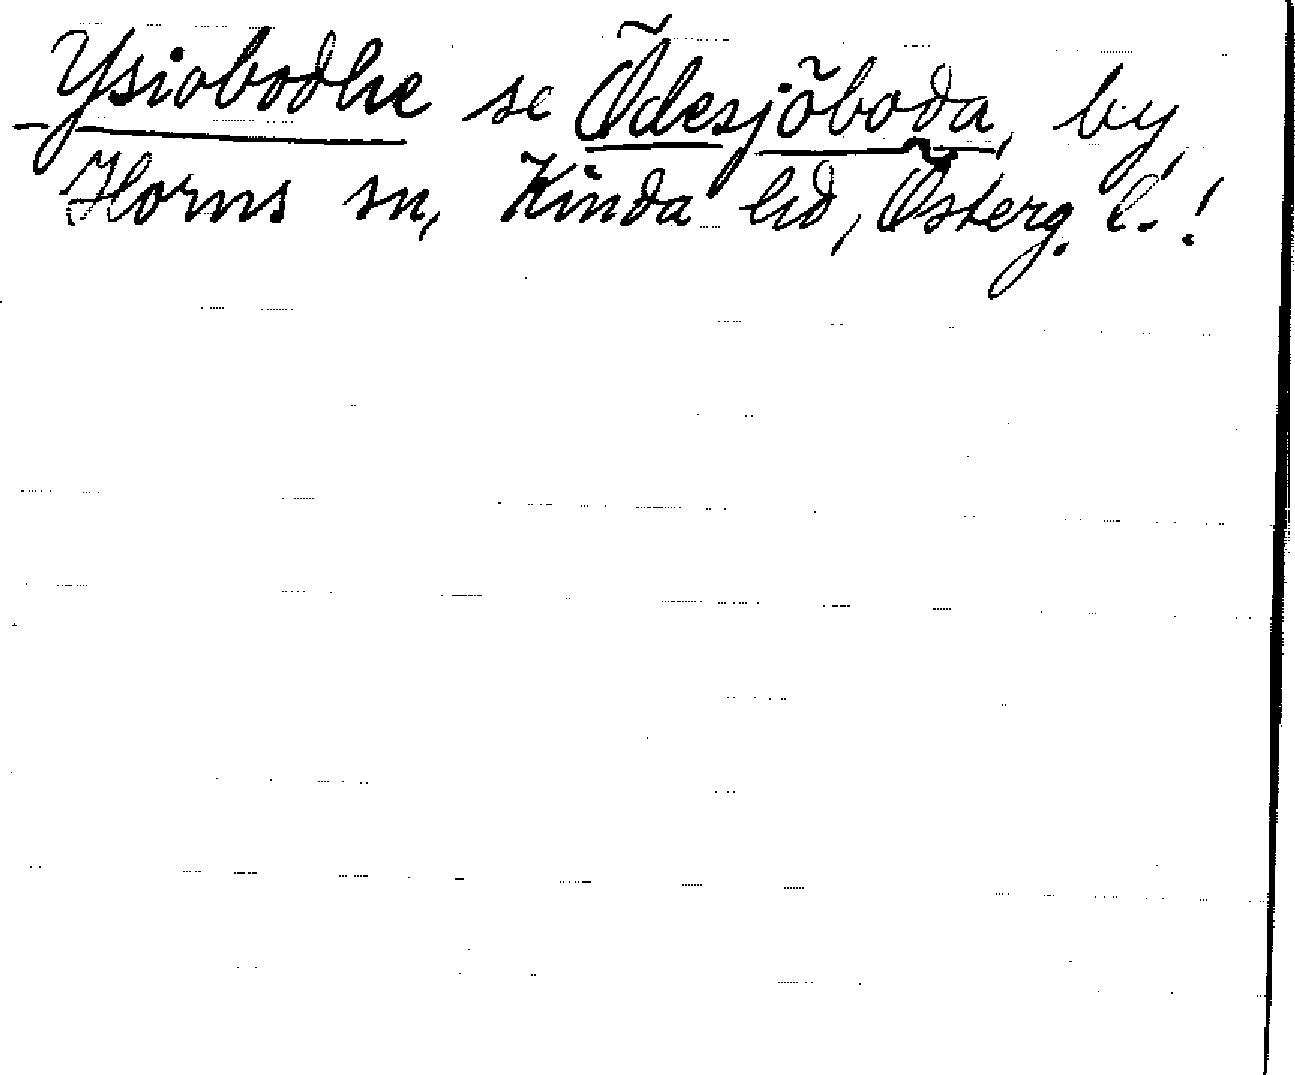 Ysiobodhe se Ödesjöboda, by,
Horns sn, Kinda hd, Österg. l.!